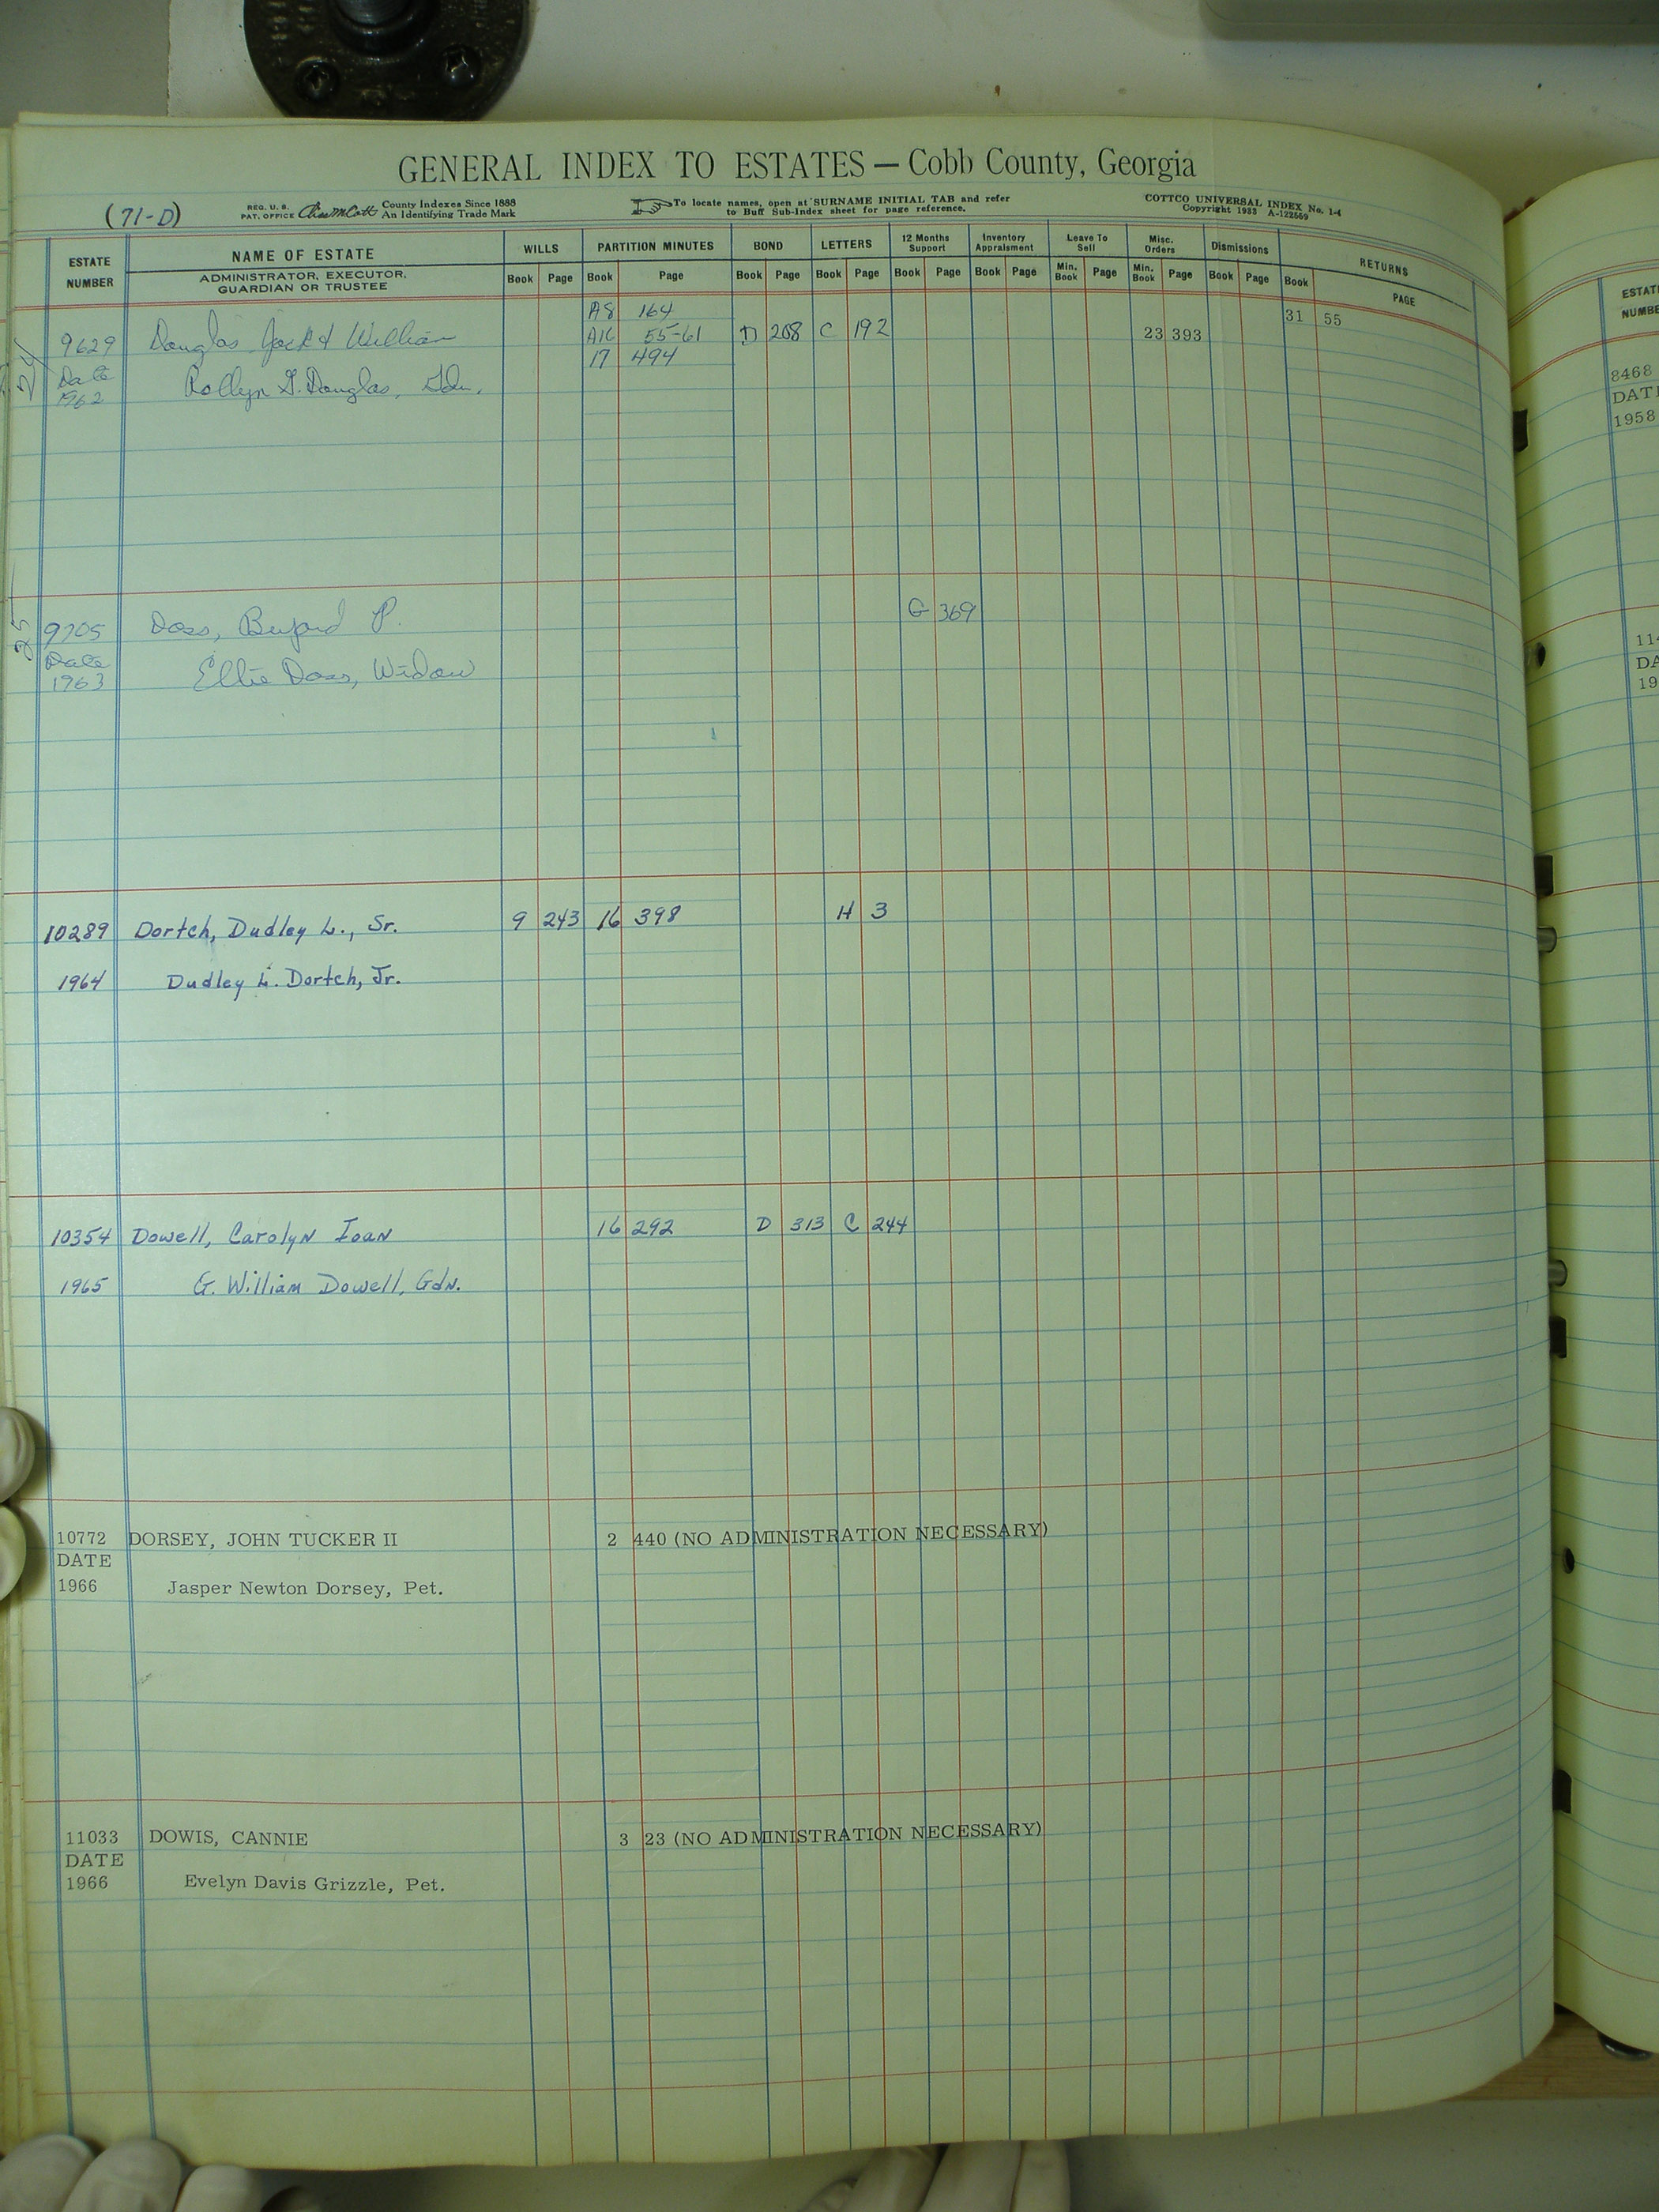 GENERAL INDEX TO ESTATES — Cobb County, Georgia
(71-D)
REG. U. S. PAT. OFFICE
County Indexes Since 1888
An Identifying Trade Mark
To locate names, open at SURNAME INITIAL TAB and refer
to Buff Sub-Index sheet for page reference.
COTTCO UNIVERSAL INDEX No. 1-4
Copyright 1933 A-122569
ESTATE NUMBER
NAME OF ESTATE
ADMINISTRATOR, EXECUTOR, GUARDIAN OR TRUSTEE
WILLS PARTITION MINUTES BOND LETTERS 12 Months Support Inventory Appraisment Leave To Sell Misc. Orders Dismissions RETURNS
Book Page Book Page Book Page Book Page Book Page Book Page Min. Book Page Min. Book Page Book Page Book PAGE
24
A8 164 31 55
9629 Douglas William A16 55-61 D 208 C 192 23 393
17 494
Date Douglas, Gdn.
1962
25
9705 Doss, Buford P. G 369
Date Ellie Doss, Widow
1963
10289 Dortch, Dudley L., Sr. 9 243 16 398 H 3
1964 Dudley L. Dortch, Jr.
10354 Dowell, Carolyn Joan 16 292 D 313 C 244
1965 G. William Dowell, Gdn.
10772 DORSEY, JOHN TUCKER II 2 440 (NO ADMINISTRATION NECESSARY)
DATE
1966 Jasper Newton Dorsey, Pet.
11033 DOWIS, CANNIE 3 23 (NO ADMINISTRATION NECESSARY)
DATE
1966 Evelyn Davis Grizzle, Pet.
8468
1958